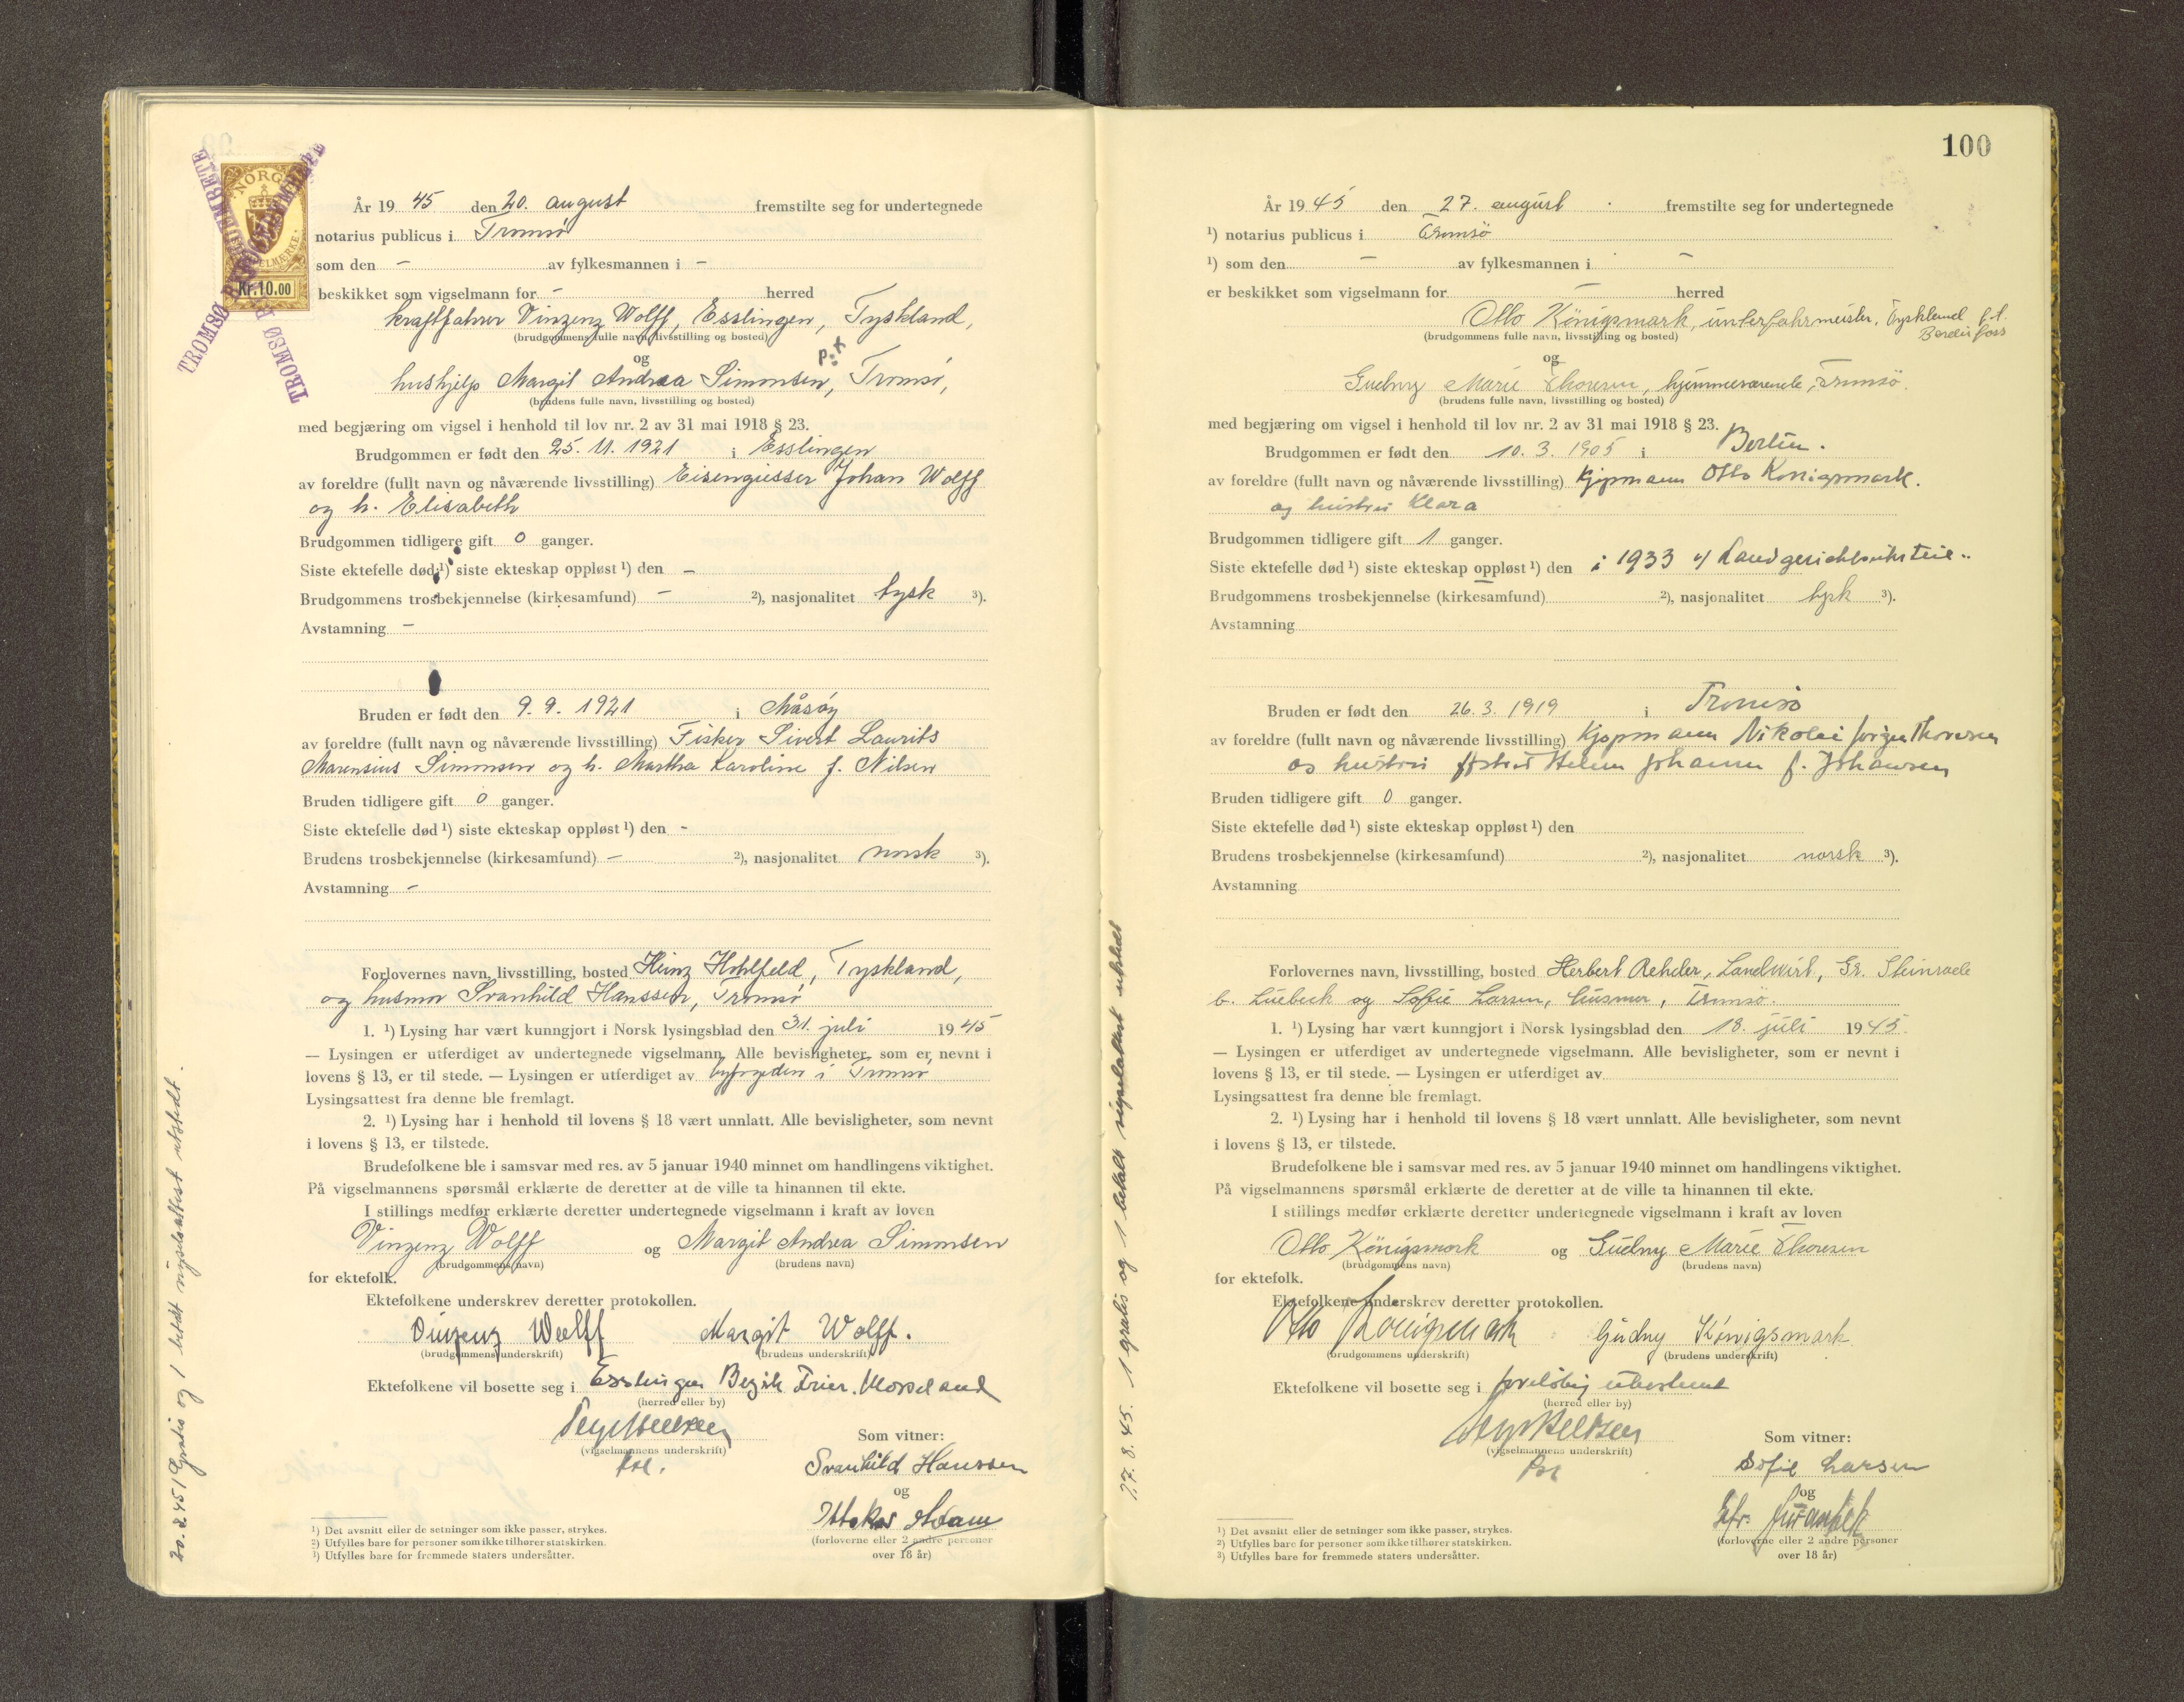 TROMSØ
NORGE
Kr.10.00
År 19 45 den 20. august fremstilte seg for undertegnede
notarius publicus i Tromsø
som den – av fylkesmannen i –
beskikket som vigselmann for – herred
kraftfahrer Vinzenz Wolff, Esslingen, Tyskland,
(brudgommens fulle navn, livsstilling og bosted)
og
hushjelp Margit Andrea Simonsen, Tromsø,
(brudens fulle navn, livsstilling og bosted)
med begjæring om vigsel i henhold til lov nr. 2 av 31 mai 1918 § 23.
Brudgommen er født den 25. 11. 1921 i Esslingen
av foreldre (fullt navn og nåværende livsstilling) Eisengiesser Johan Wolff
og h. Elisabeth
Brudgommen tidligere gift 0 ganger.
Siste ektefelle død ¹) siste ekteskap oppløst ¹) den –
Brudgommens trosbekjennelse (kirkesamfund) – ²), nasjonalitet tysk ³).
Avstamning –
Bruden er født den 9. 9. 1921 i Måsøy
av foreldre (fullt navn og nåværende livsstilling) Fisker Sivert Laurits
Marensius Simonsen og h. Martha Karoline f. Nilsen
Bruden tidligere gift 0 ganger.
Siste ektefelle død ¹) siste ekteskap oppløst ¹) den -
Brudens trosbekjennelse (kirkesamfund) – ²), nasjonalitet norsk ³).
Avstamning –
Forlovernes navn, livsstilling, bosted Heinz Hohlfeld, Tyskland,
og husmor Svanhild Hanssen, Tromsø
1. ¹) Lysing har vært kunngjort i Norsk lysingsblad den 31. juli 19 45
— Lysingen er utferdiget av undertegnede vigselmann. Alle bevisligheter, som er nevnt i
lovens § 13, er til stede. — Lysingen er utferdiget av byfogden i Tromsø
Lysingsattest fra denne ble fremlagt.
2. ¹) Lysing har i henhold til lovens § 18 vært unnlatt. Alle bevisligheter, som nevnt
i lovens § 13, er tilstede.
Brudefolkene ble i samsvar med res. av 5 januar 1940 minnet om handlingens viktighet.
På vigselmannens spørsmål erklærte de deretter at de ville ta hinannen til ekte.
I stillings medfør erklærte deretter undertegnede vigselmann i kraft av loven
Vinzenz Wolff og Margit Andrea Simonsen
(brudgommens navn) (brudens navn)
for ektefolk.
Ektefolkene underskrev deretter protokollen.
Vinzenz Wolff Margit Wolff.
(brudgommens underskrift) (brudens underskrift)
Ektefolkene vil bosette seg i Esslingen Bezirk Trier. Moseland
(herred eller by)
(vigselmannens underskrift)
Som vitner:
Svanhild Hanssen
og
(forloverne eller 2 andre personer
over 18 år)
¹) Det avsnitt eller de setninger som ikke passer, strykes.
²) Utfylles bare for personer som ikke tilhører statskirken.
³) Utfylles bare for fremmede staters undersåtter.
1 gratis og 1 betalt vigselsattest utstedt.
100
År 19 45 den 27. august fremstilte seg for undertegnede
¹) notarius publicus i Tromsö
¹) som den – av fylkesmannen i –
er beskikket som vigselmann for – herred
Otto Königsmark, unterfahrmeister, Tyskland f.t.
Bardufoss
(brudgommens fulle navn, livsstilling og bosted)
og
Gudny Marie Thoresen, hjemmeværende, Tromsö.
(brudens fulle navn, livsstilling og bosted)
med begjæring om vigsel i henhold til lov nr. 2 av 31 mai 1918 § 23.
Brudgommen er født den 10. 3. 1905 i Berlin.
av foreldre (fullt navn og nåværende livsstilling) Kjøpmann Otto Königsmark.
og hustru Klara
Brudgommen tidligere gift 1 ganger.
Siste ektefelle død ¹) siste ekteskap oppløst ¹) den i 1933
Brudgommens trosbekjennelse (kirkesamfund) ²), nasjonalitet tysk ³).
Avstamning
Bruden er født den 26. 3. 1919 i Tromsø
av foreldre (fullt navn og nåværende livsstilling) Kjøpmann Nikolai Jørgen Thoresen
og hustru Helene Johanne f. Johansen
Bruden tidligere gift 0 ganger.
Siste ektefelle død ¹) siste ekteskap oppløst ¹) den
Brudens trosbekjennelse (kirkesamfund) ²), nasjonalitet norsk ³).
Avstamning
Forlovernes navn, livsstilling, bosted Herbert Rehder, Landwirt, Gr. Steinrade
b. Luebeck og Sofie Larsen, husmor, Tromsø.
1. ¹) Lysing har vært kunngjort i Norsk lysingsblad den 18. juli 19 45.
— Lysingen er utferdiget av undertegnede vigselmann. Alle bevisligheter, som er nevnt i
lovens § 13, er til stede. — Lysingen er utferdiget av
Lysingsattest fra denne ble fremlagt.
2. ¹) Lysing har i henhold til lovens § 18 vært unnlatt. Alle bevisligheter, som nevnt
i lovens § 13, er tilstede.
Brudefolkene ble i samsvar med res. av 5 januar 1940 minnet om handlingens viktighet.
På vigselmannens spørsmål erklærte de deretter at de ville ta hinannen til ekte.
I stillings medfør erklærte deretter undertegnede vigselmann i kraft av loven
Otto Königsmark og Gudny Marie Thoresen
(brudgommens navn) (brudens navn)
for ektefolk.
Ektefolkene underskrev deretter protokollen.
Otto Königsmark Gudny Königsmark
(brudgommens underskrift) (brudens underskrift)
Ektefolkene vil bosette seg i foreløbig ubestemt
(herred eller by)
(vigselmannens underskrift)
Som vitner:
Sofie Larsen
og
(forloverne eller 2 andre personer
over 18 år)
¹) Det avsnitt eller de setninger som ikke passer, strykes.
²) Utfylles bare for personer som ikke tilhører statskirken.
³) Utfylles bare for fremmede staters undersåtter.
27. 8. 45. 1 gratis og 1 betalt vigselsattest utstedt